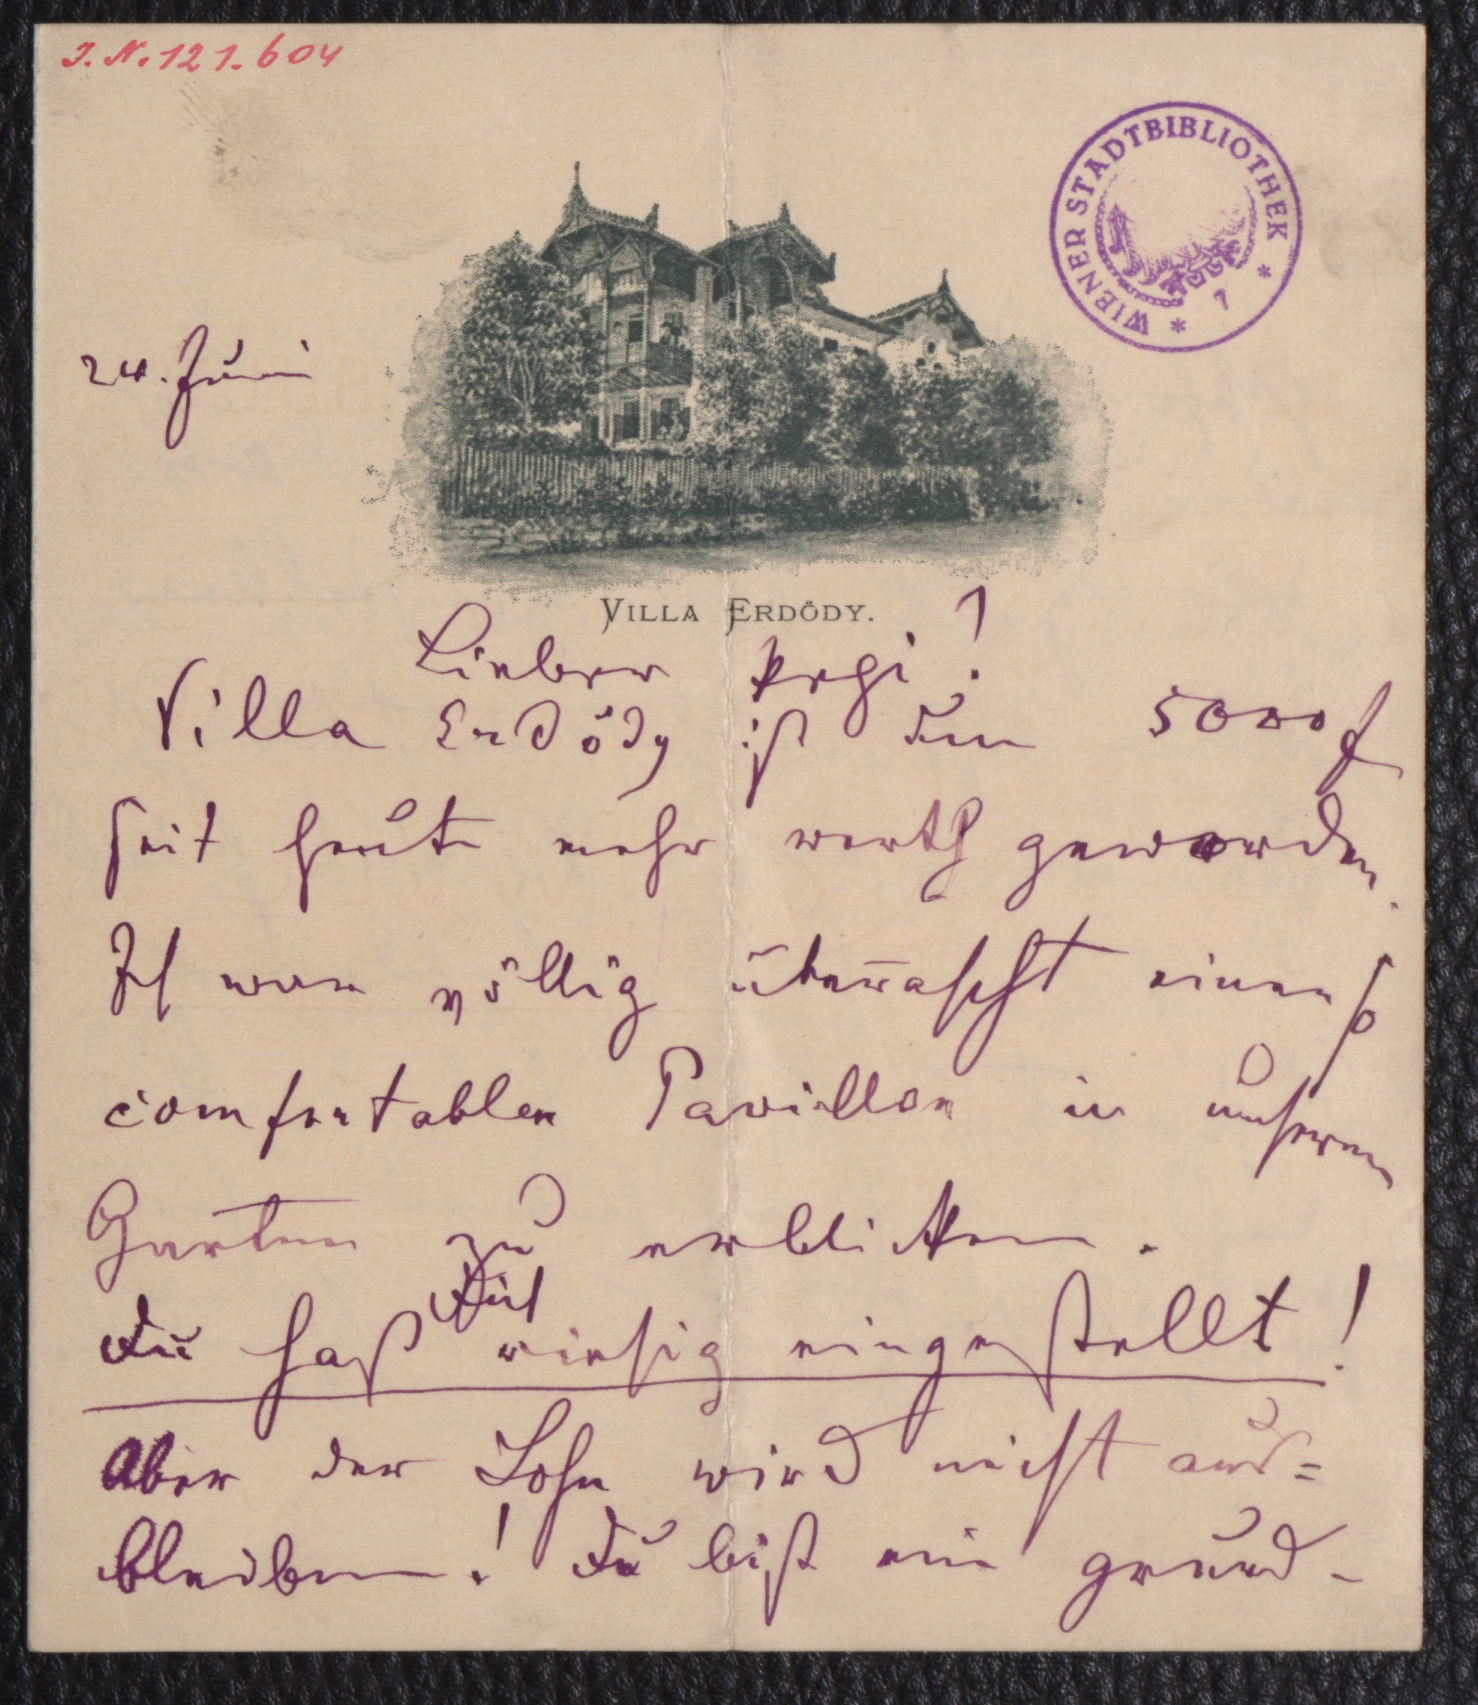 I.N. 121.604
WIENER STADTBIBLIOTHEK * 7 *
24. Juni
VILLA ERDÖDY.
Lieber Pepi!
Villa Erdödy ist um 5000 f
seit heute mehr werth geworden.
Ich war völlig überrascht einen so
comfortablen Pavillon in unserem
Garten zu erblicken.
Du hast Dich riesig eingestellt!
Aber der Lohn wird nicht aus=
bleiben! Du bist ein grund-